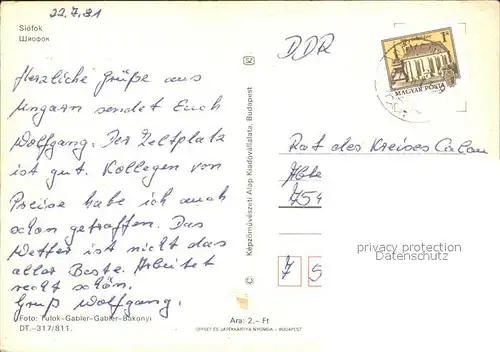 22.7.81
Siófok
Шиофок
Herzliche Grüße aus
Ungarn sendet Euch
Wolfgang. Der Zeltplatz
ist gut. Kollegen von
habe ich auch
schon getroffen. Das
Wetter ist nicht das
aller Beste. Arbeitet
recht schön.
Gruß Wolfgang.
Foto: Tulok-Gabler-Gabler-Bakonyi
DT.-317/811.
Képzőművészeti Alap Kiadóvállalata, Budapest
©
Ára: 2,- Ft
OFFSET ÉS JÁTÉKKÁRTYA NYOMDA - BUDAPEST
DDR
MAGYAR POSTA
Rat des Kreises Calau
Abt.
754
7 5
privacy protection
Datenschutz